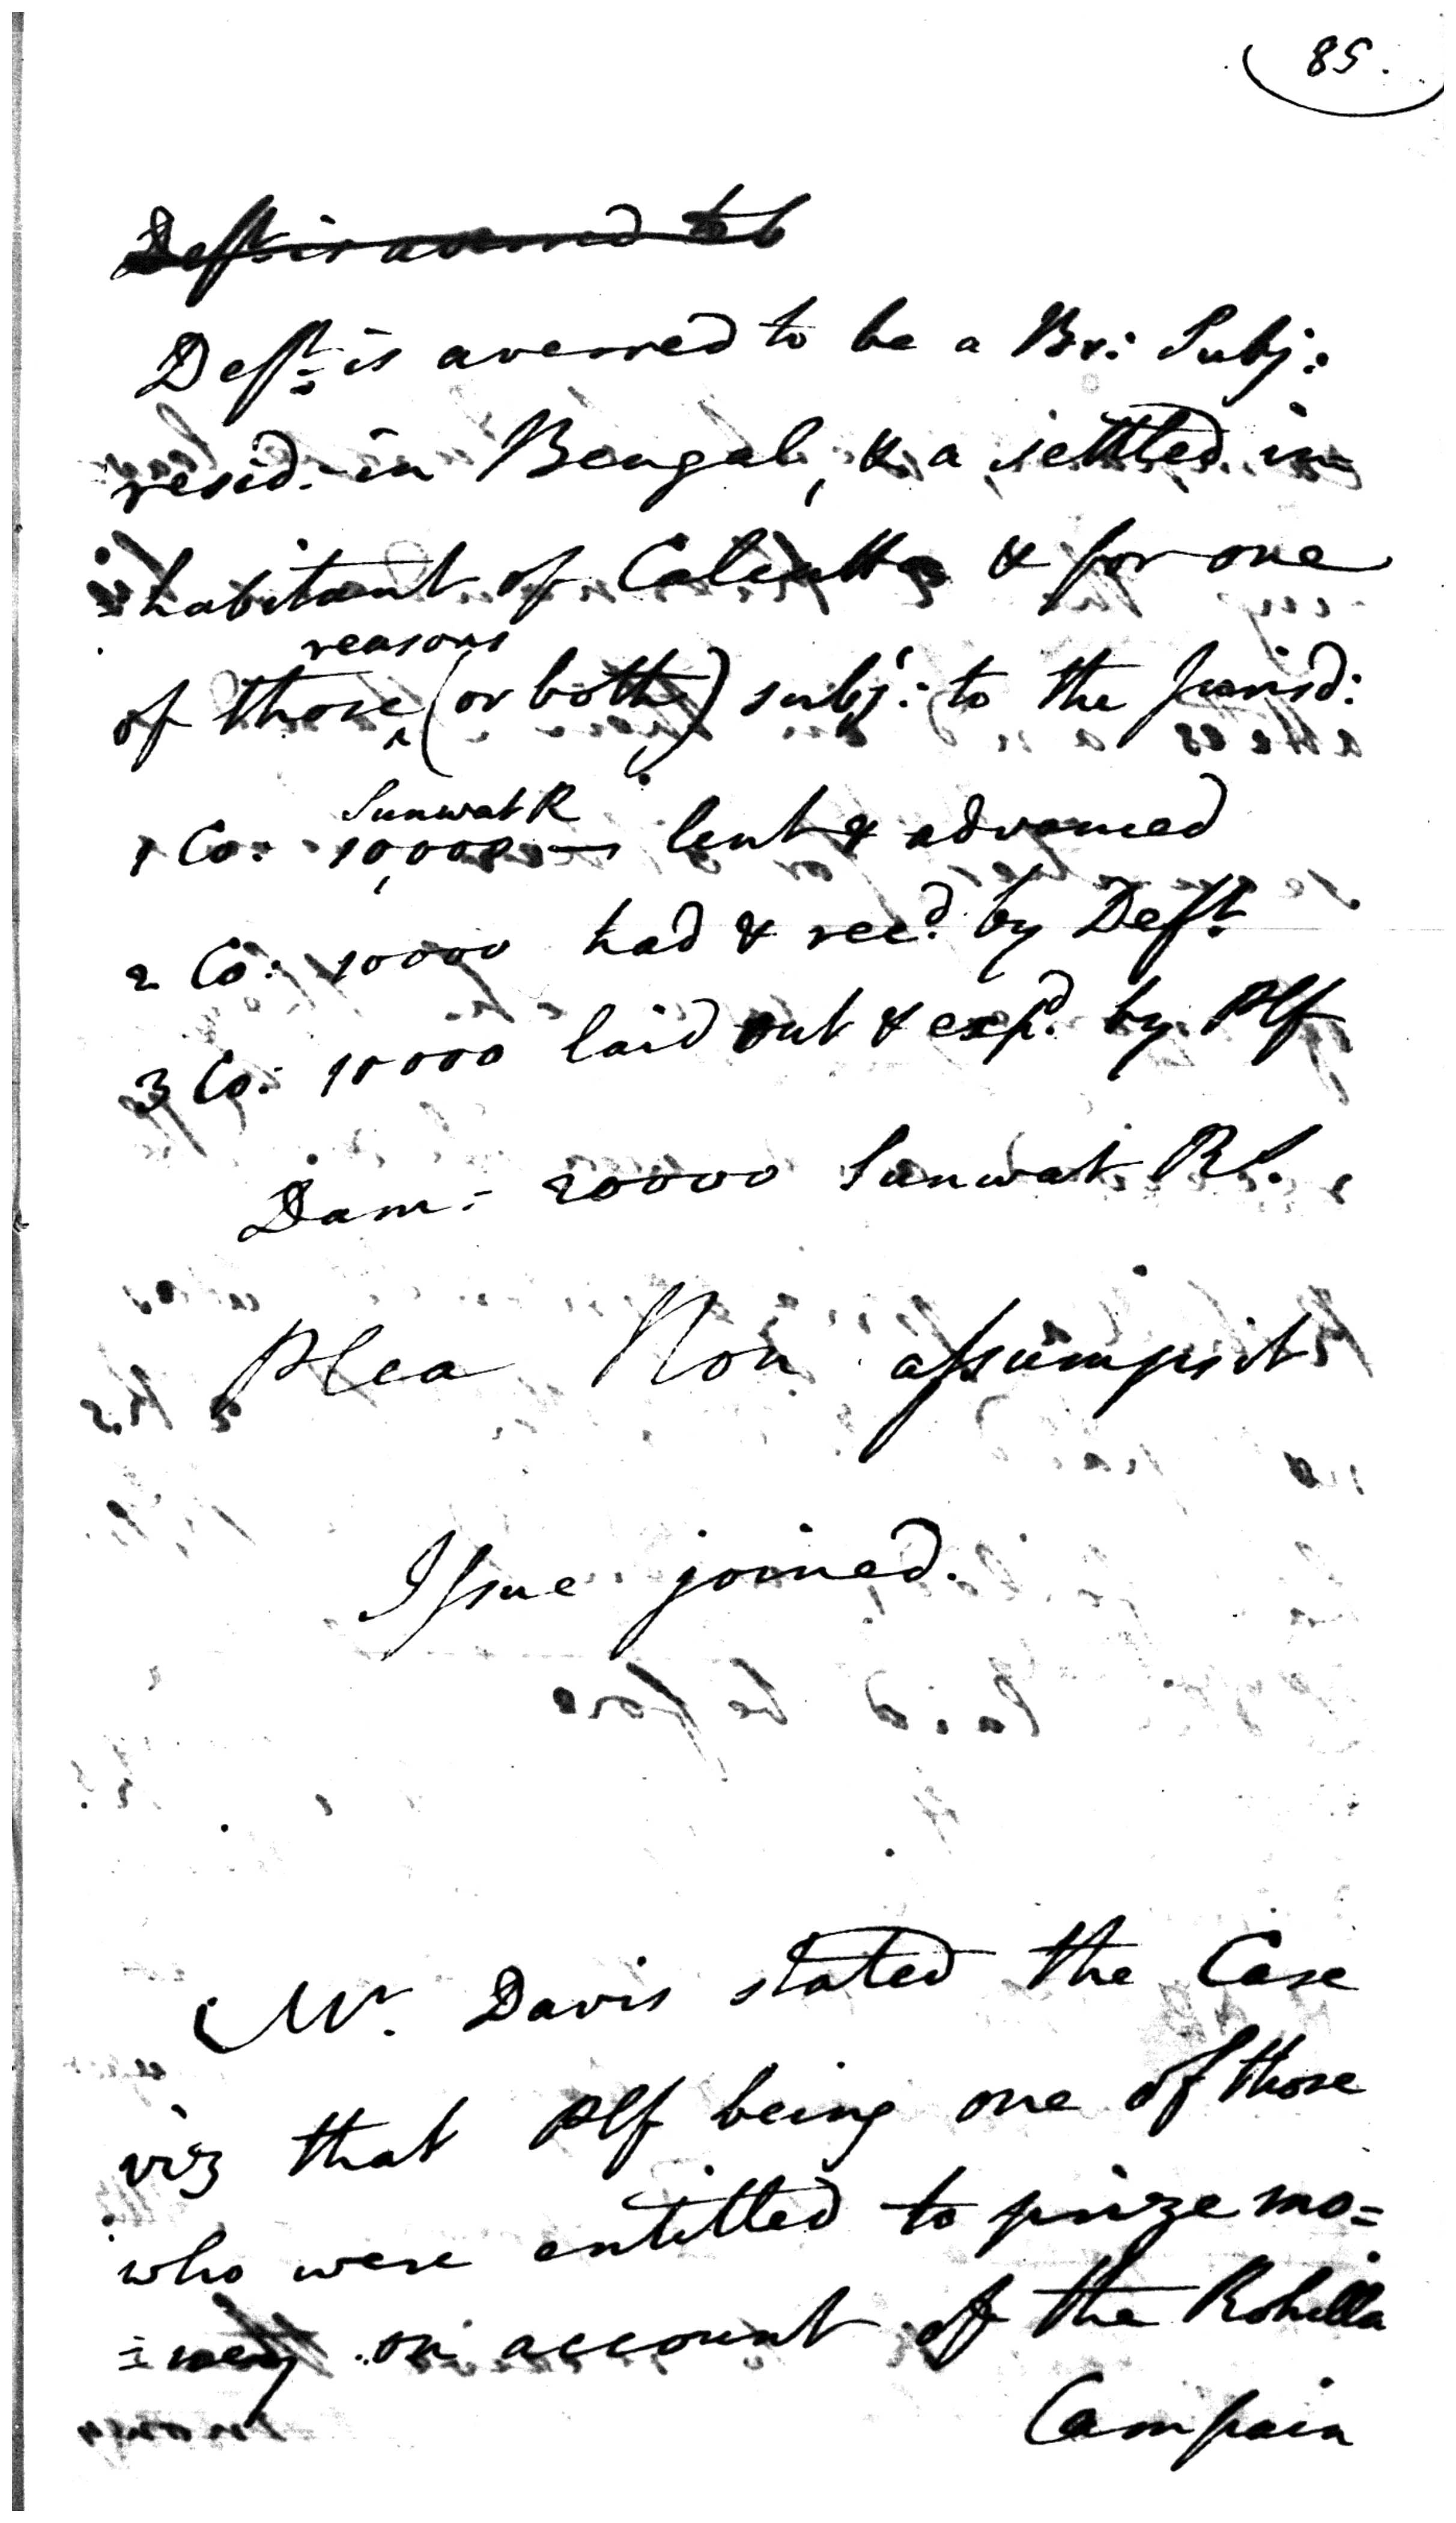 85.
Deft. is averred to b
Deft. is averred to be a Br: Subj:
resid. in Bengal, & a settled in=
=habitant of Calcutta & for one
reasons
of those ^ (or both) subj: to the Jurisd:
Sunwat R
1 Co: 10,000 — lent & advanced
2 Co: 10000 had & recd. by Deft.
3 Co: 10000 laid out & expd. by Plf
Dam: 20000 Sunwat Rs.
Plea Non assumpsit
Issue joined.
Mr. Davis stated the Case
viz that Plf being one of those
who were entitled to prize mo=
=ney on account of the Rohilla
Campain